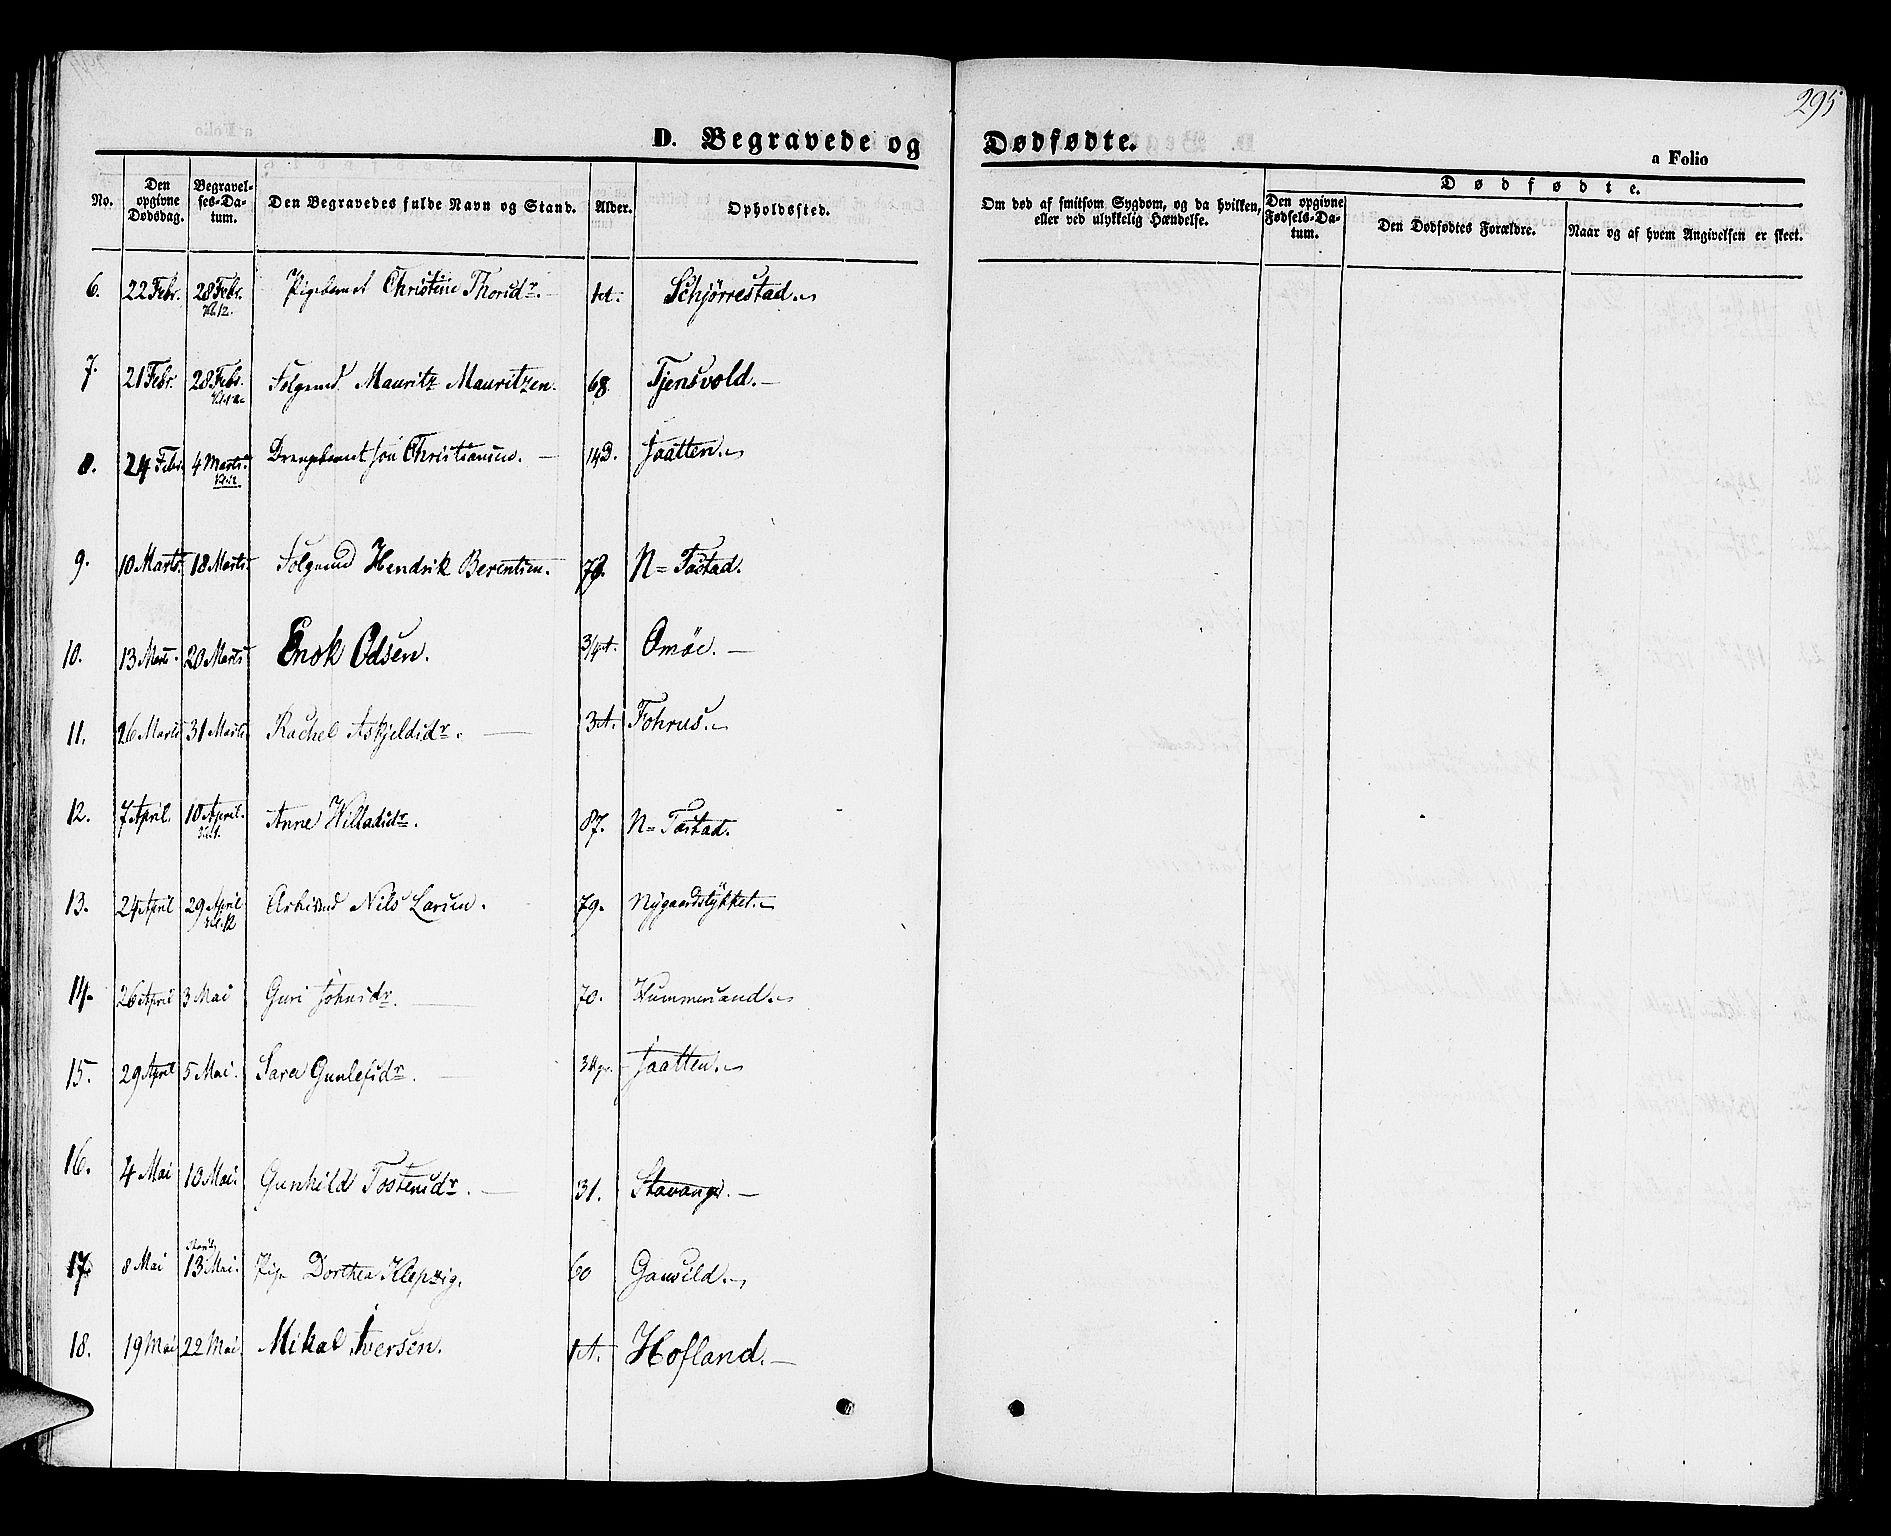 295
D. Begravede og Dødfødte.
a Folio
No. Den opgivne Dødsdag. Begravelses-Datum. Den Begravedes fulde Navn og Stand. Alder. Opholdssted. Om død af smitsom Sygdom, og da hvilken, eller ved ulykkelig Hændelse. Dødfødte.
Den opgivne Fødsels-Datum. Den Dødfødtes Forældre. Naar og af hvem Angivelsen er skeet.
6. 22 Febr. 28 Febr. Pigebarnet Christine Thorsdr. 1 A. Schjørrestad.
7. 21 Febr. 28 Febr. Folgemd. Mauritz Mauritzen. 68. Tjensvold.
8. 24 Febr. 4 Marts. Drengebarnet Jon Christiansen. 14 D. Jaatten.
9. 10 Marts. 18 Marts. Folgemd Hendrik Berentsen. N= Tastad.
10. 13 Marts. 20 Marts Enok Odsen. 3/4 A. Omöe.
11. 26 Marts 31 Marts. Rachel Askjeldsdr. 3 A. Fohrus.
12. 7 April. 10 April. Anne Willadsdr. 87. N= Tastad.
13. 24 April 29 April Nils Larsen. 79. Nygaardstykket.
14. 26 April 3 Mai Guri Johnsdr. 70. Hummersand.
15. 29 April 5 Mai. Sara Gunlefsdr. Jaatten.
16. 4 Mai 10 Mai. Gunhild Tostensdr. 31. Stavanger.
17. 8 Mai 13 Mai. Pige Dorthea Klepzig. 60 Gausild.
18. 19 Mai 22 Mai. Mikal Iversen. 1 A. Hofland.